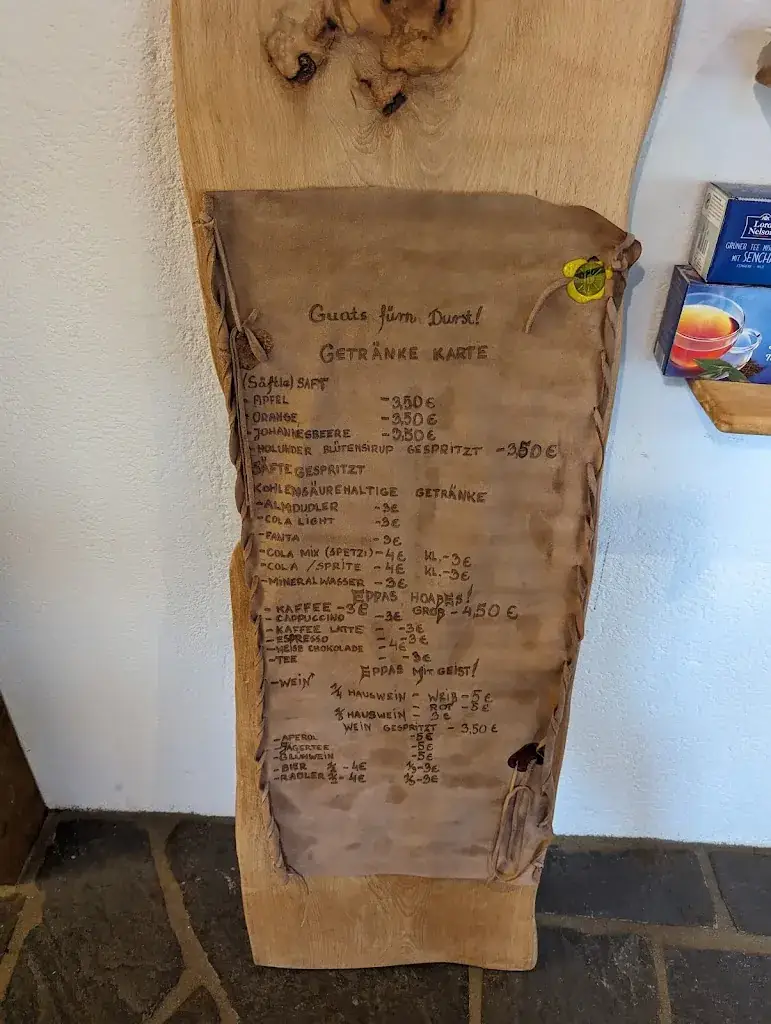 Guats fürn Durst!
GETRÄNKE KARTE
(Säftle) SAFT
- APFEL -3,50 €
- ORANGE -3,50 €
- JOHANNESBEERE -3,50 €
- HOLUNDER BLÜTENSIRUP GESPRITZT -3,50 €
SÄFTE GESPRITZT
KOHLENSÄUREHALTIGE GETRÄNKE
- ALMDUDLER -3€
- COLA LIGHT -3€
- FANTA -3€
- COLA MIX (SPETZI) -4€ KL.-3€
- COLA / SPRITE -4€ KL.-3€
- MINERALWASSER -3€
EPPAS HOAßES!
- KAFFEE -3€ GROß -4,50 €
- CAPPUCCINO -3€
- KAFFEE LATTE - -3€
- ESPRESSO - -3€
- HEIßE CHOKOLADE -4€
- TEE - -3€
EPPAS MIT GEIST!
- WEIN
1/4 HAUSWEIN - WEIß -5€
ROT -5€
1/8 HAUSWEIN - 3€
WEIN GESPRITZT - 3,50 €
- APEROL -5€
- JÄGERTEE -5€
- GLÜHWEIN -5€
- BIER 1/2 -4€ 1/3-3€
- RADLER 1/2 -4€ 1/3-3€
Lord
Nelson
GRÜNER TEE
MIT SENCHA